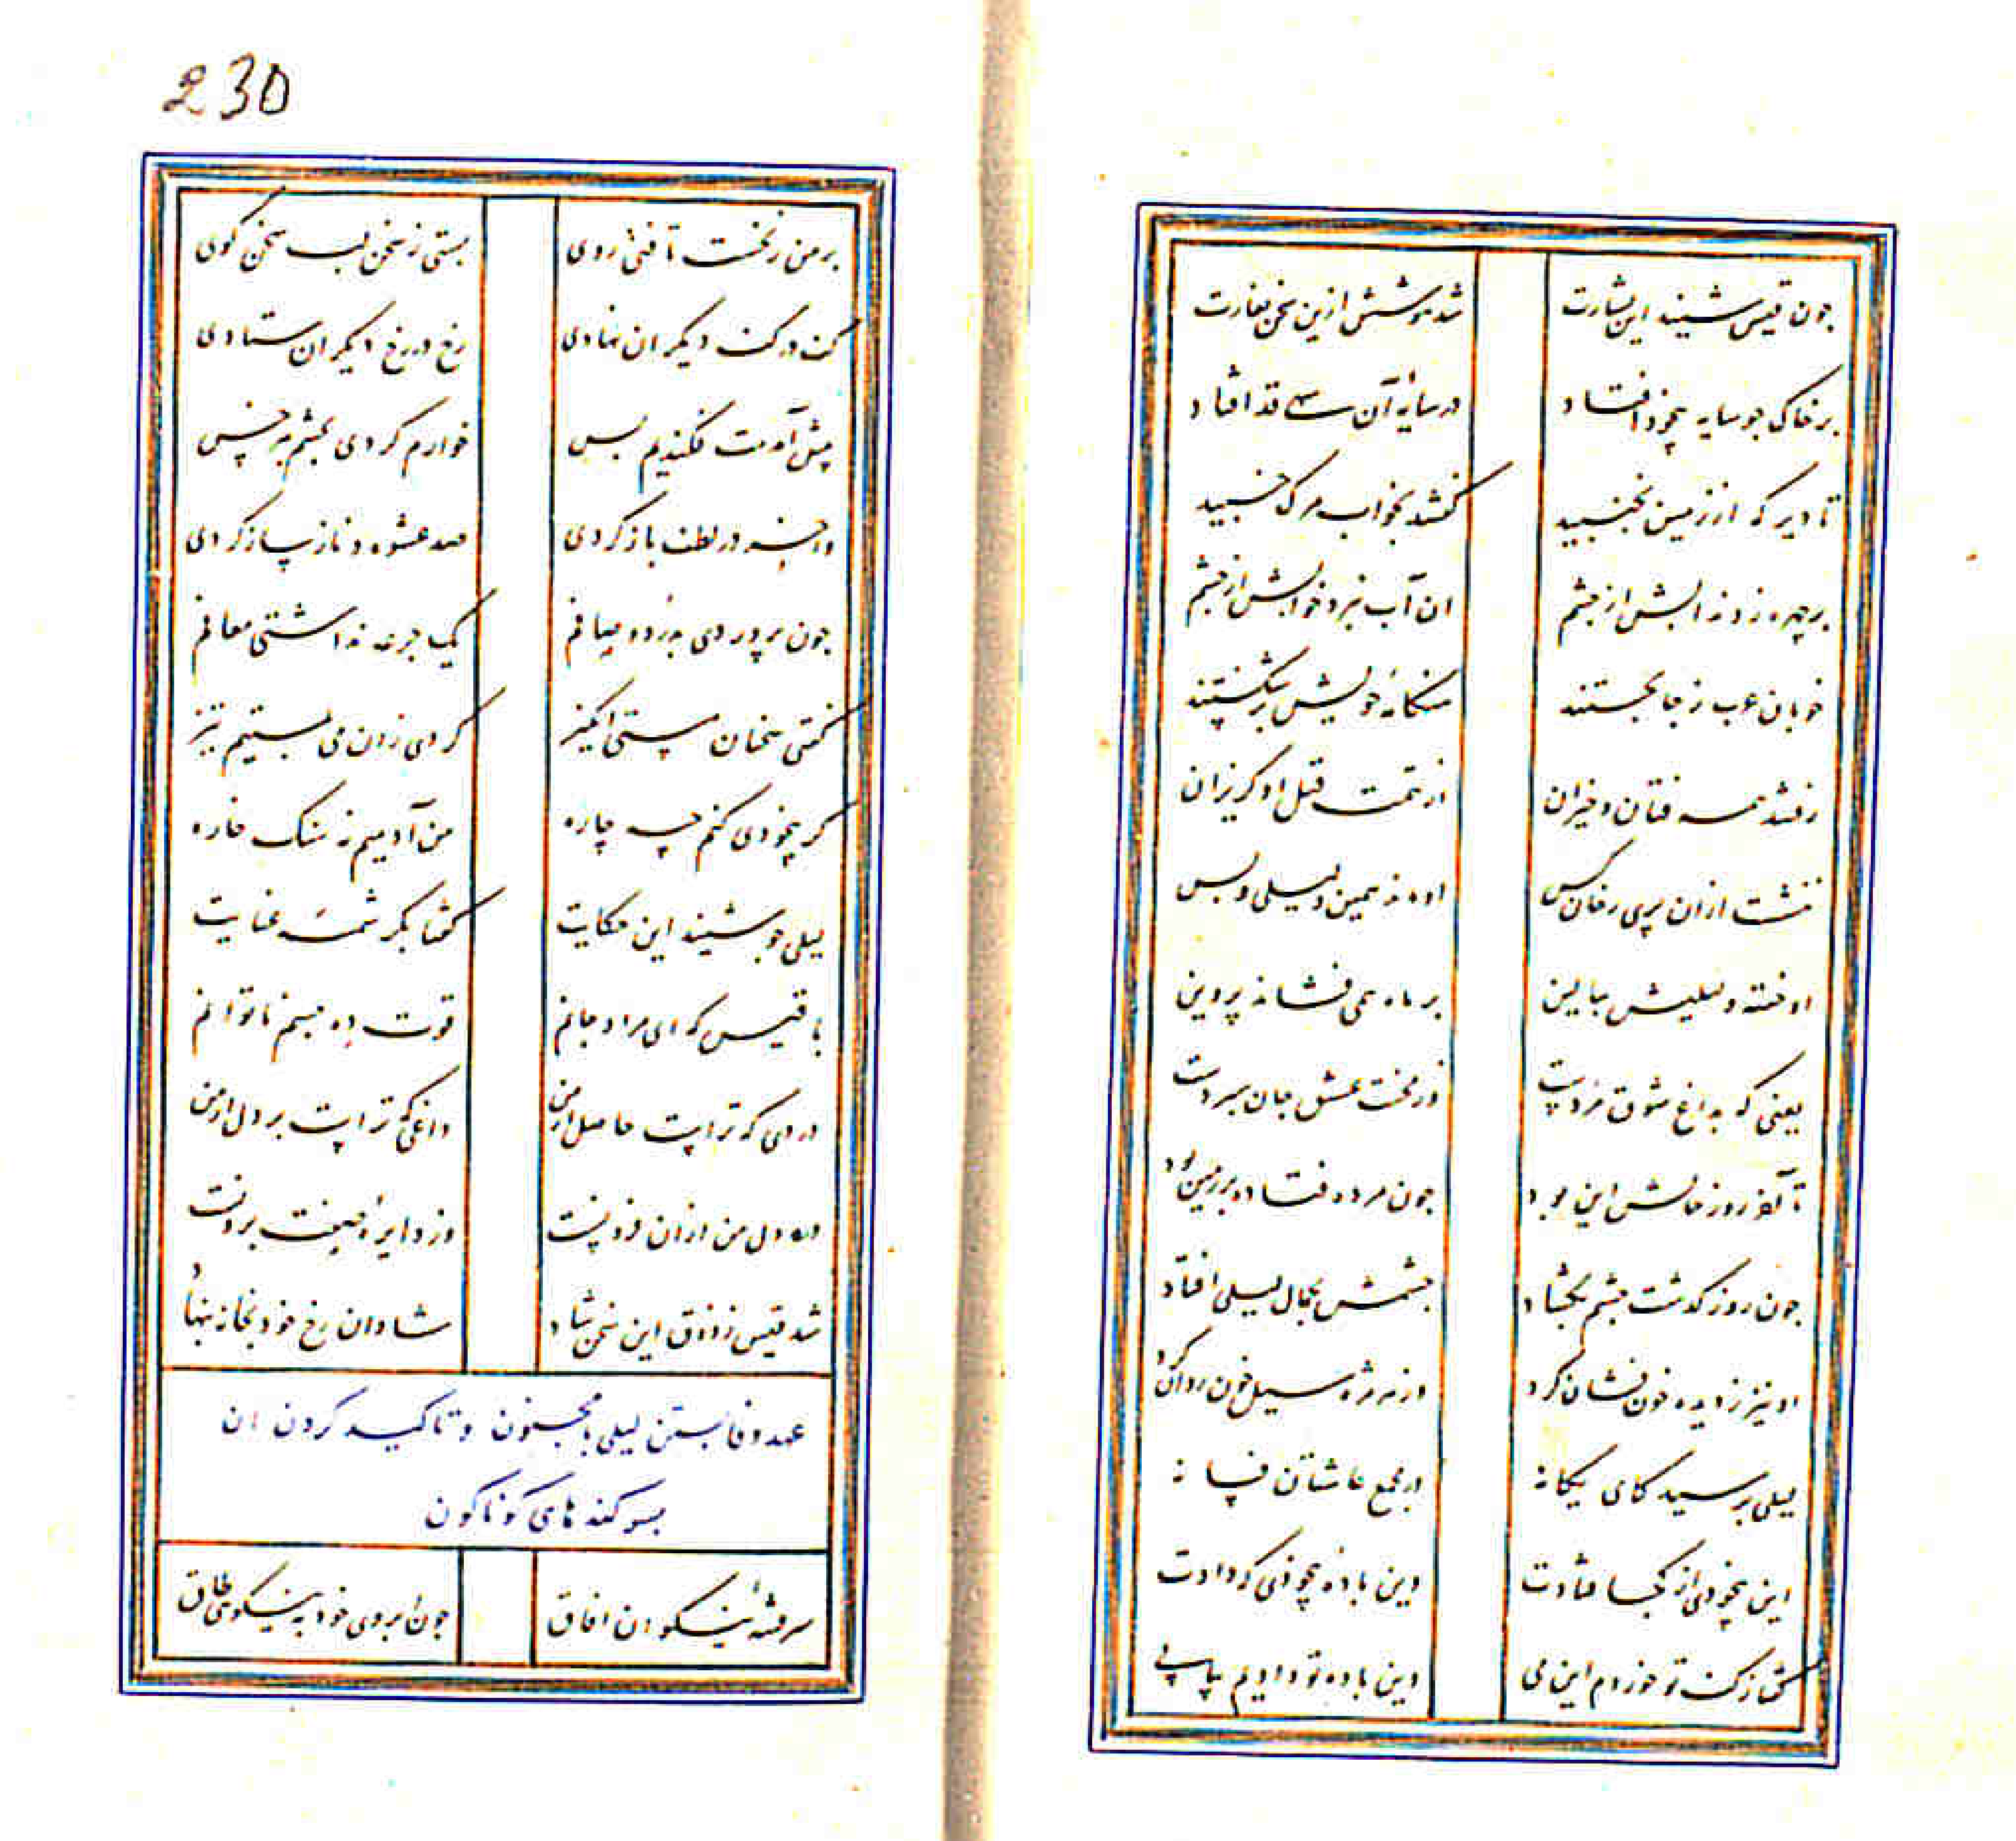 جون قیس شنید این بشارت شد هوشش ازین سخن بغارت
بر خاک جو سایه بیخود افتاد در سایهٔ آن سهی قد افتاد
تا دیر که از زمین نجنبید گفتند بخواب مرک خسبید
بر چهره زدند آبش از جشم ان آب نبرد خوابش از جشم
خوبان عرب ز جا بجستند هنکامهٔ خویش بر شکستند
رفتند همه فتان و خیزان از تهمت قتل او کریزان
ننشست ازان پری رخان کس او ماند همین و لیلی و بس
او خفته و لیلیش ببالین بر ماه همی فشاند پروین
یعنی که بداغ شوق مردست وز محنت عشق جان سپردست
تا آخر روز حالش این بود جون مرده فتاده بر زمین بود
جون روز کذشت جشم بکشاد جشمش بجمال لیلی افتاد
او نیز ز دیده خون فشان کرد وز هر مژه سیل خون روان کرد
لیلی پرسید کای یکانه در مجمع عاشقان فسانه
این بیخودی از کجا فتادت وین باده بیخودی که دادت
کفتا ز کف تو خوردم این می وین باده تو دادیم پیاپی
230
بر من ز نخست تافتی روی بستی ز سخن لب سخن کوی
کف در کف دیکران نهادی رخ در رخ دیکران ستادی
پیش آمدمت فکندیم پس خوارم کردی بچشم هر خس
واخر در لطف باز کردی صد عشوه و ناز ساز کردی
جون پروردی بدرد و صافم یک جرعه نداشتی معافم
کفتی سخنان مستی انکیز کردی زان می بمستیم تیز
کر بیخودی کنم چه چاره من آدمیم نه سنک خاره
لیلی جو شنید این حکایت کفتا بکرشمهٔ عنایت
با قیس که ای مراد جانم قوت ده جسم ناتوانم
دردی که تراست حاصل از من داغی که تراست بر دل از من
درد دل من ازان فزونست وز دایرهٔ صفت برونست
شد قیس ز ذوق این سخن شاد شادان رخ خود بخانه بنهاد
عهد وفا بستن لیلی با مجنون و تاکید کردن ان
بسوکند های کوناکون
سرفتنهٔ نیکوان افاق جون ابروی خود به نیکویی طاق